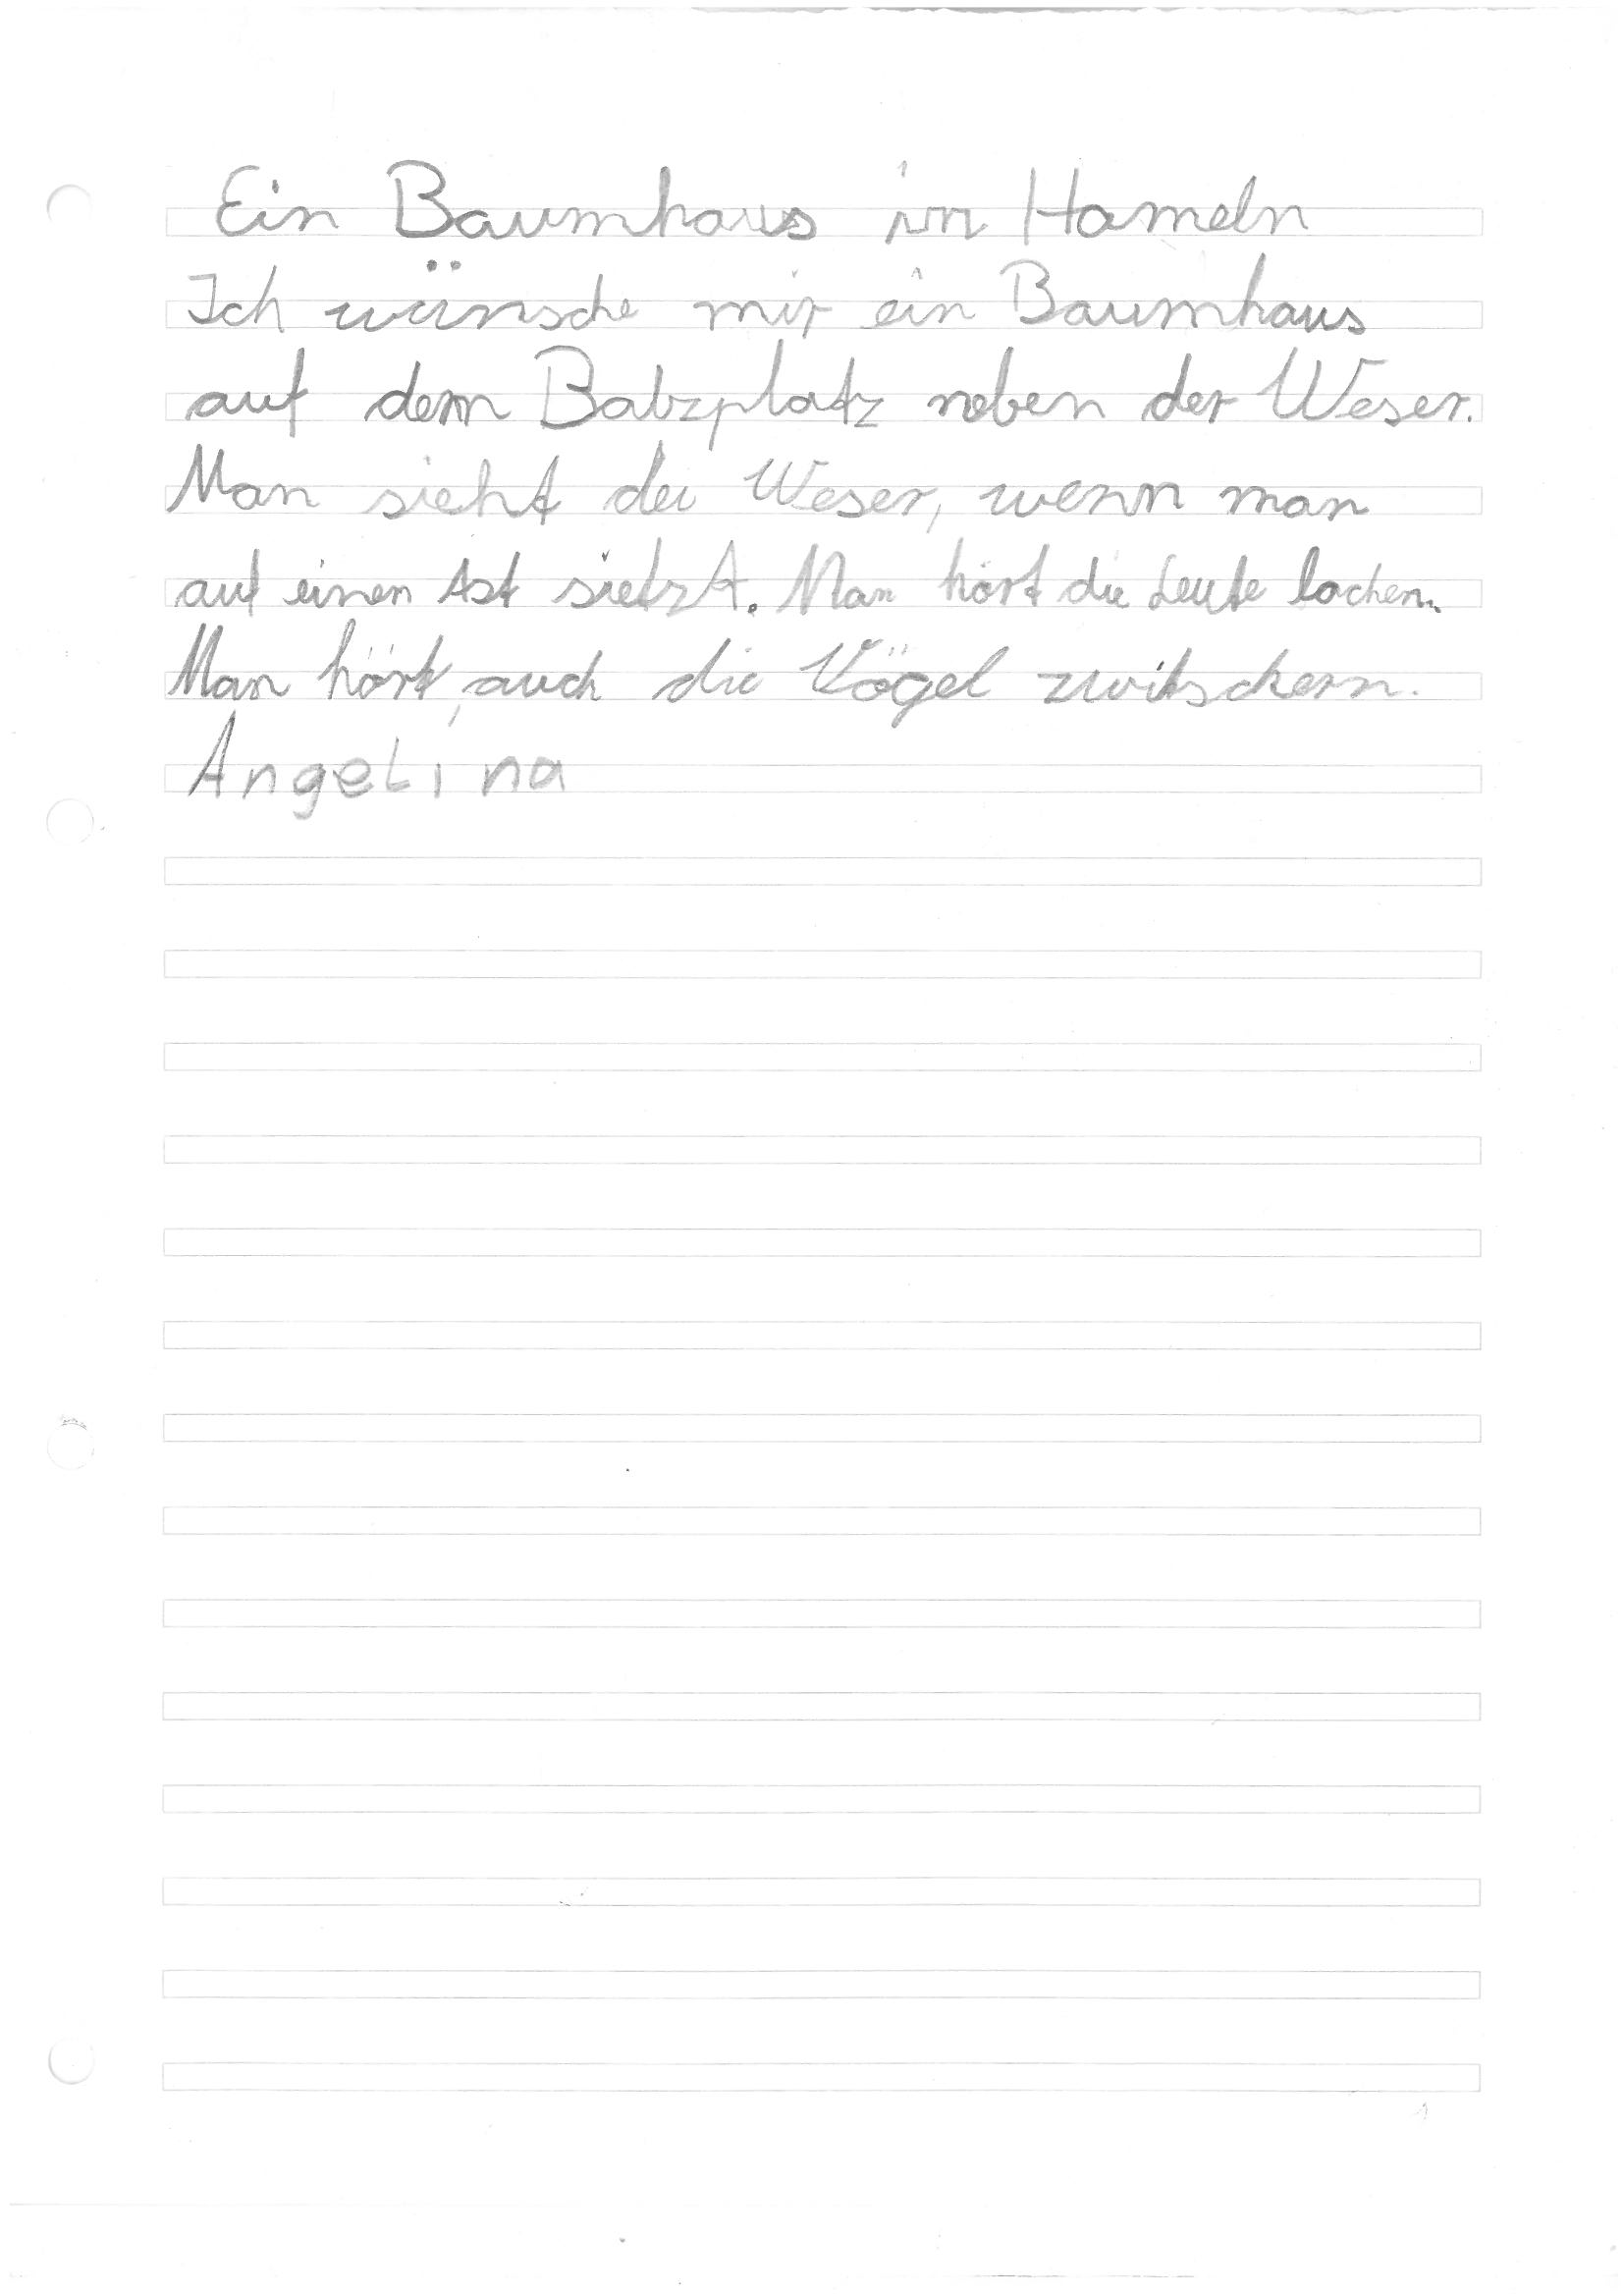 Ein Baumhaus in Hameln
Ich wünsche mir ein Baumhaus
auf dem Babzplatz neben der Weser.
Man sieht dei Weser, wenn man
auf einen Ast sietzt. Man hört die Leute lachen.
Man hört, auch die Vögel zwitschern.
Angelina